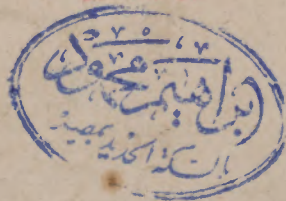 ابراهيم محمود
بالسكة الحديد بمصر